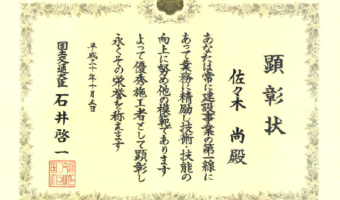 顕彰状
佐々木 尚 殿
あなたは常に建設事業の第一線に
あって業務に精励し技術・技能の
向上に努め他の模範であります
よって優秀施工者として顕彰し
永くその栄誉を称えます
国土交通大臣 石井啓一